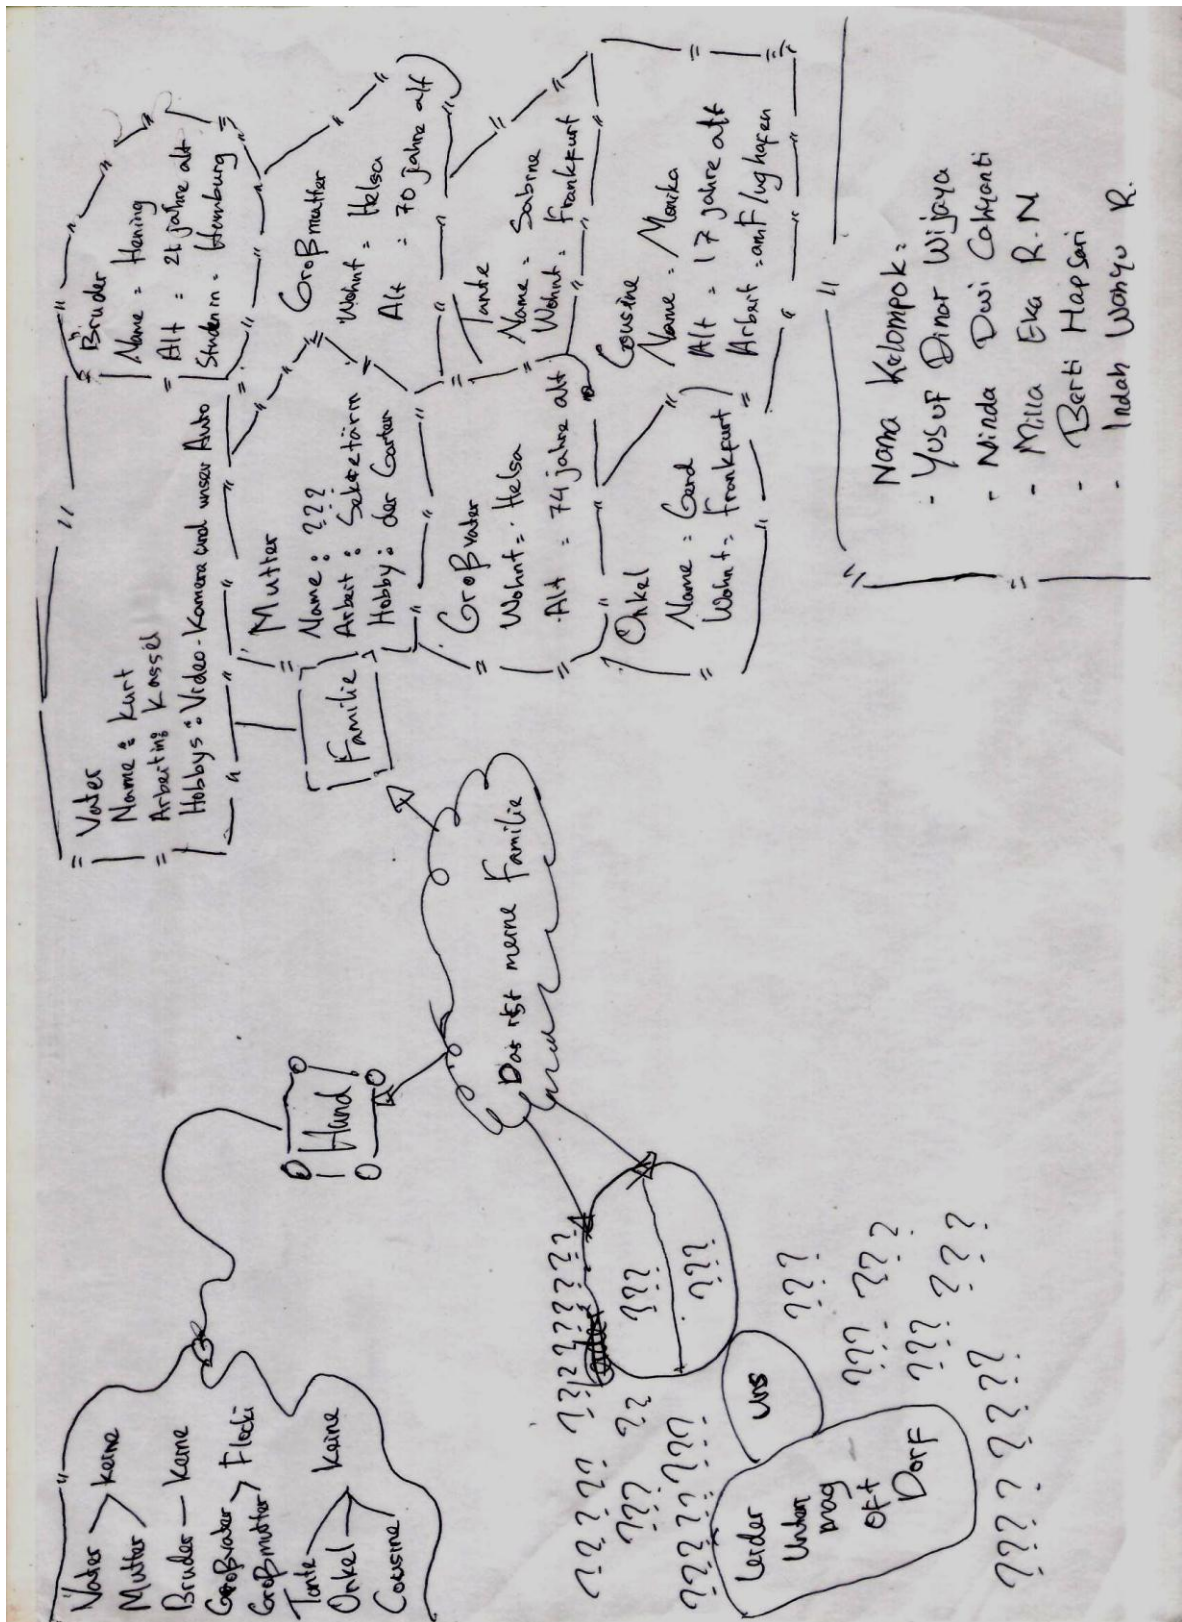 Vater
Name : kurt
Arbeiting Kassel
Hobbys : Video-Kamera und unser Auto
Bruder
Name = Hening
Alt = 21 jahre alt
Studenin = Hamburg
Mutter
Name : ???
Arbeit : Sekretärin
Hobby : der Garten
Großmutter
Wohnt = Helsa
Alt = 70 jahre alt
Großvater
Wohnt = Helsa
Alt = 74 jahre alt
Tante
Name = Sabine
Wohnt = Frankfurt
Onkel
Name = Gerd
Wohnt = Frankfurt
Cousine
Name = Monika
Alt = 17 jahre alt
Arbeit = am Flughafen
Familie
Das ist meine Familie
Hund
Vater
Mutter
keine
Bruder - keine
Großvater
Großmutter
Flecki
Tante
Onkel
Cousine
keine
???
???
uns
Leider
Unten
mag
oft
Dorf
Nama Kelompok :
- Yusuf Dinar Wijaya
- Ninda Dwi Cahyanti
- Milla Eka R.N
- Berti Hapsari
- Indah Wahyu R.